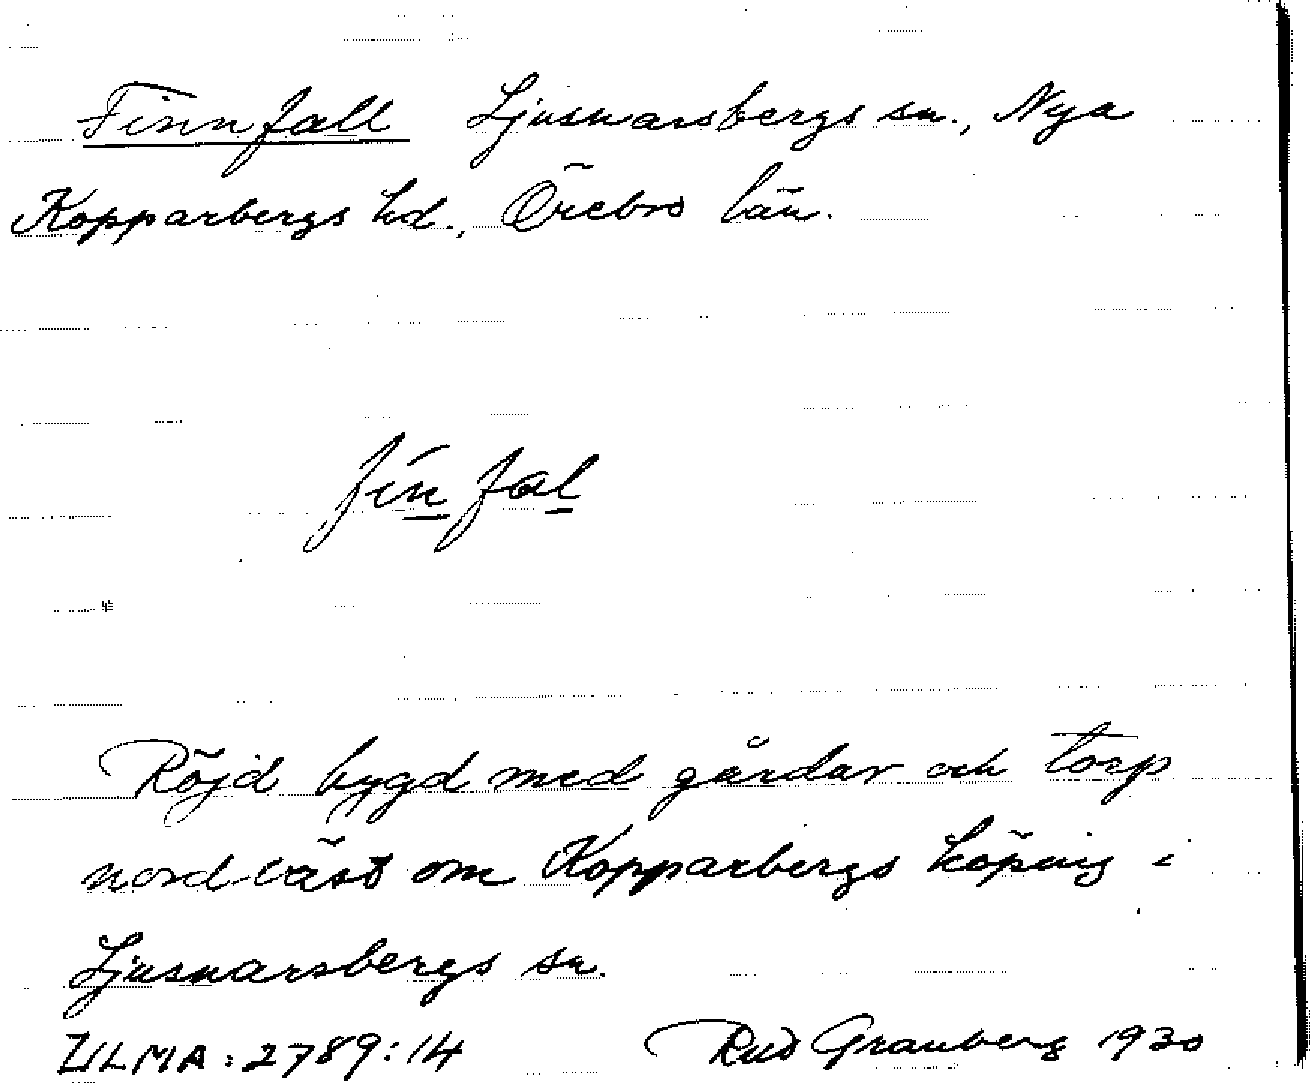 Finnfall Ljusnarsbergs sn., Nya
Kopparbergs hd., Örebro län.
fín fal
Röjd bygd med gårdar och torp
nordväst om Kopparbergs köping i
Ljusnarsbergs sn.
ULMA: 2789:14 Rud Granberg 1930